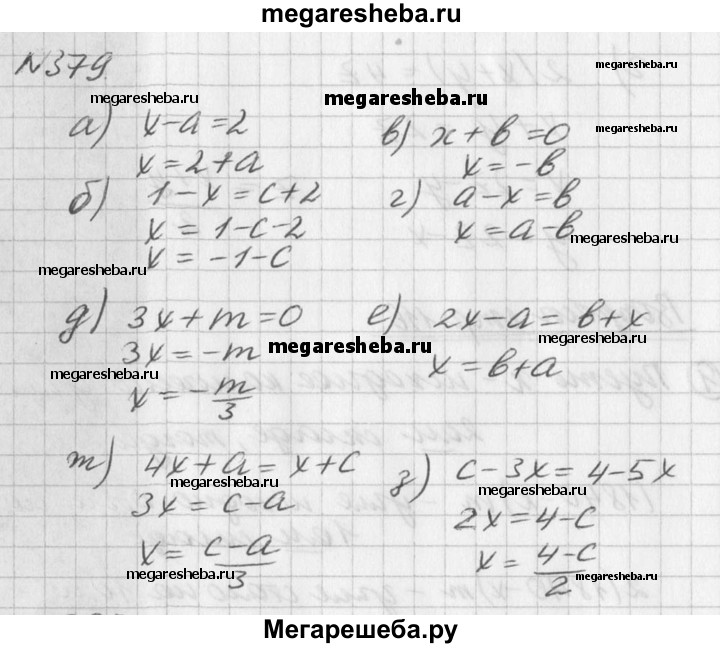 megaresheba.ru
N379
megaresheba.ru megaresheba.ru megaresheba.ru
а) x-a=2
x=2+a
в) x+b=0
x=-b
б) 1-x=c+2
x=1-c-2
x=-1-c
г) a-x=b
x=a-b
megaresheba.ru megaresheba.ru
д) 3x+m=0
3x=-m
x=-m/3
е) 2x-a=b+x
x=b+a
megaresheba.ru megaresheba.ru megaresheba.ru
ж) 4x+a=x+c
3x=c-a
x=(c-a)/3
з) c-3x=4-5x
2x=4-c
x=(4-c)/2
megaresheba.ru megaresheba.ru
megaresheba.ru megaresheba.ru
Мегарешеба.ру